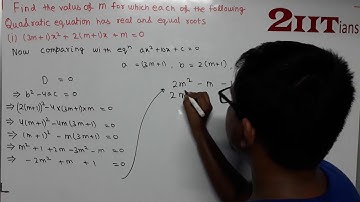 Find the value of m for which each of the following
Quadratic equation has real and equal roots
2IITians
(1) (3m+1)x² + 2(m+1)x + m = 0
Now comparing with eqⁿ ax²+bx+c = 0
a = (3m+1), b = 2(m+1)
D = 0
⇒ b² - 4ac = 0
⇒ [2(m+1)]² - 4x(3m+1)xm = 0
⇒ 4(m+1)² - 4m(3m+1) = 0
⇒ (m+1)² - m(3m+1) = 0
⇒ m² + 1 + 2m - 3m² - m = 0
⇒ - 2m² + m + 1 = 0
2m² - m -
2m